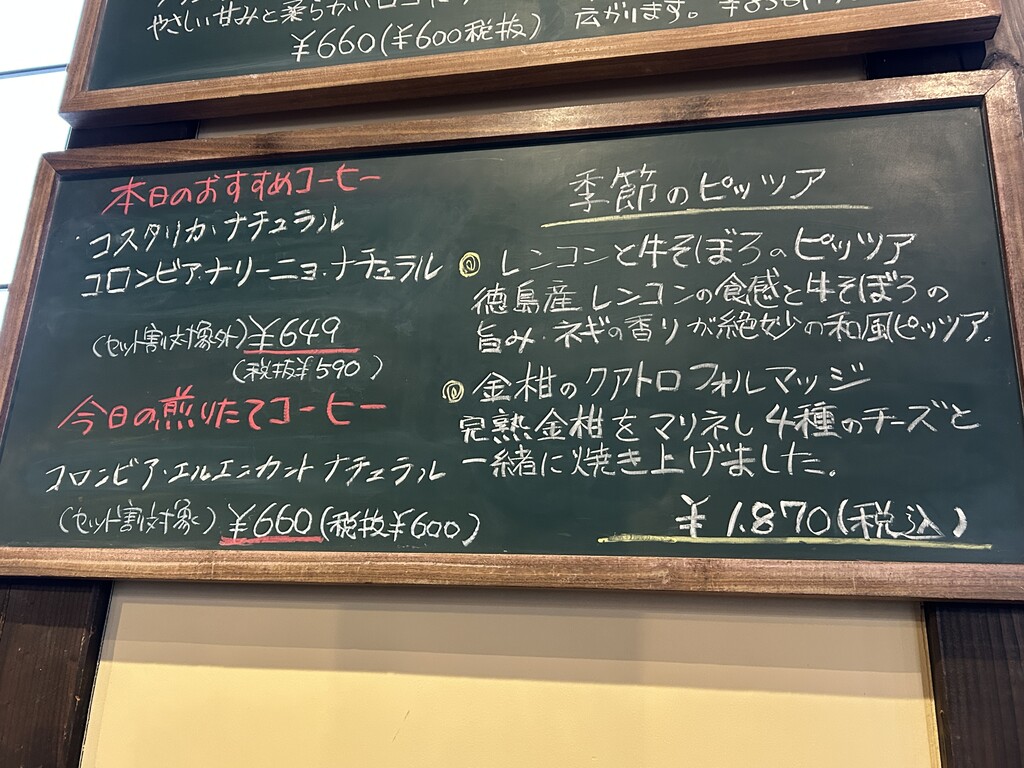 やさしい甘みと柔らかい口
¥660(¥600税抜)
広がります。
本日のおすすめコーヒー
・コスタリカ・ナチュラル
コロンビア・ナリーニョ・ナチュラル
(セット割対象外)¥649
(税抜¥590)
今日の煎りたてコーヒー
コロンビア・エルエンカント ナチュラル
(セット割対象)¥660(税抜¥600)
季節のピッツア
◎レンコンと牛そぼろのピッツア
徳島産レンコンの食感と牛そぼろの
旨み・ネギの香りが絶妙の和風ピッツア.
◎金柑のクアトロフォルマッジ
完熟金柑をマリネし4種のチーズと
一緒に焼き上げました。
¥1.870(税込)